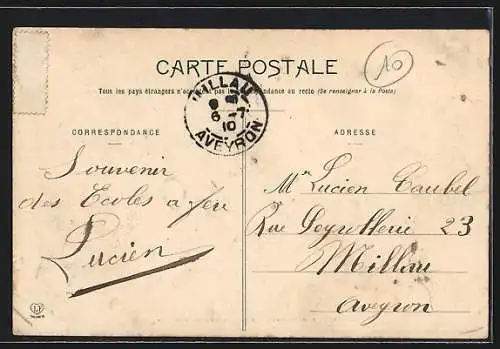 10
CARTE POSTALE
Tous les pays étrangers n'acceptent pas la correspondance au recto (Se renseigner à la Poste)
MILLAU
6 -7
10
AVEYRON
CORRESPONDANCE
ADRESSE
Souvenir
des Ecoles a feu
Lucien
Mr Lucien Caubel
Rue Peyrollerie 23
Millau
Aveyron